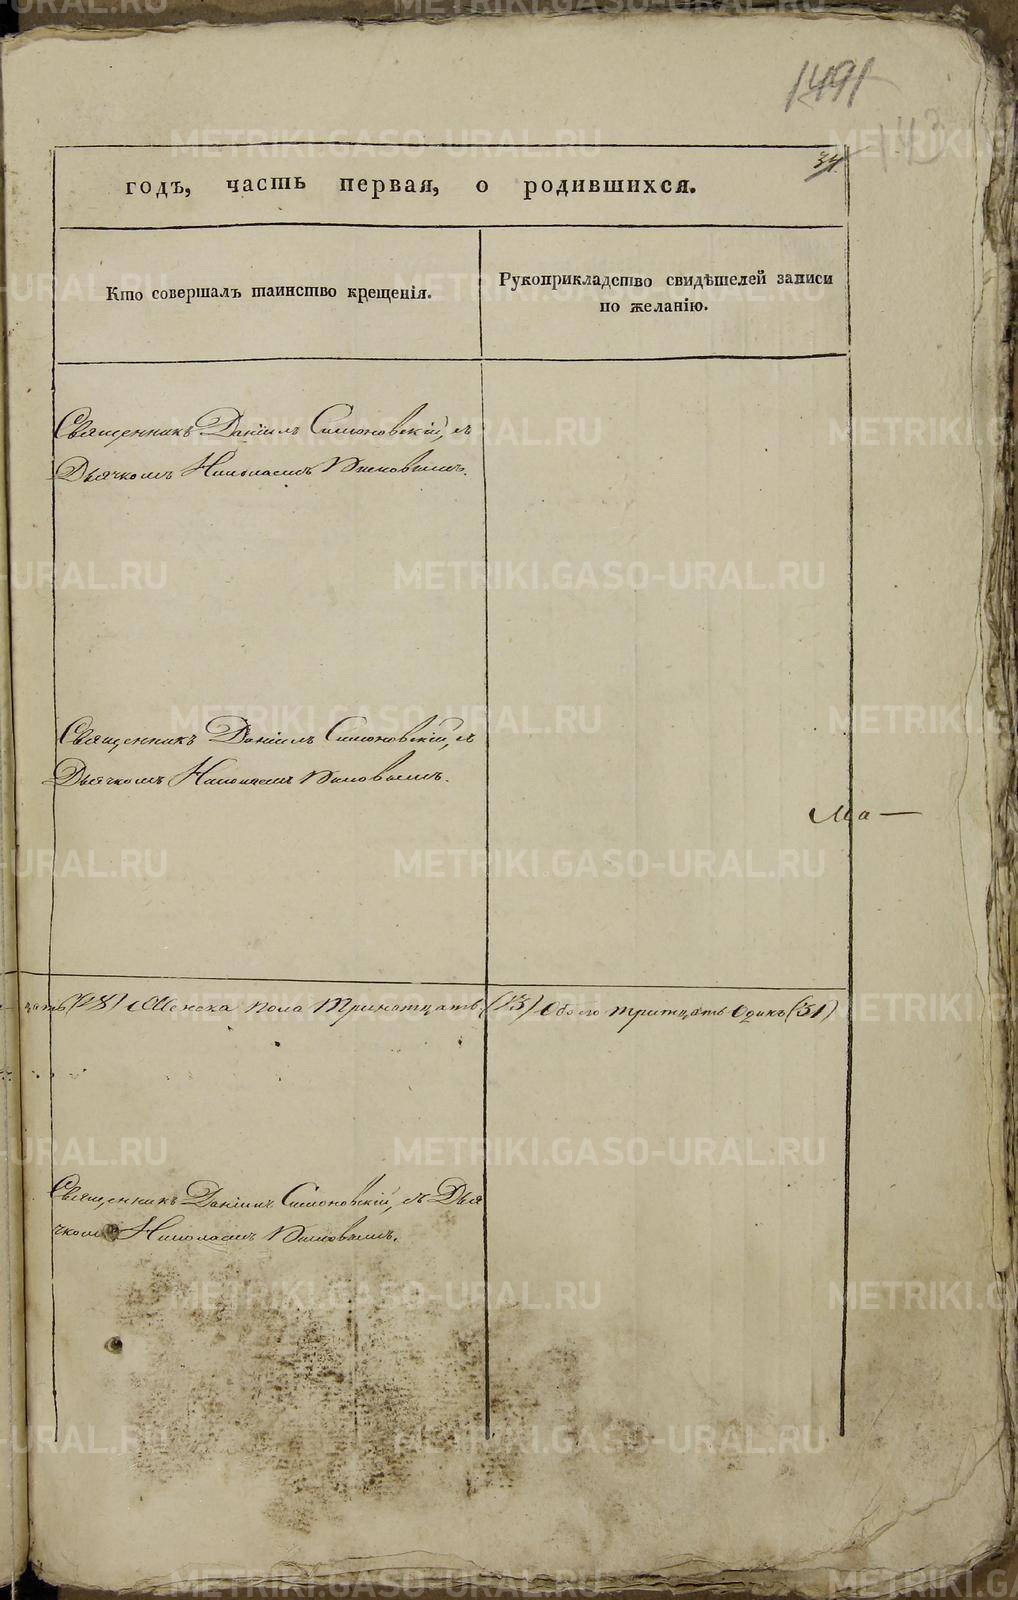 1491
143
34
годъ, часть первая, о родившихся.
Кто совершалъ таинство крещенія.
Рукоприкладство свидѣтелей записи
по желанію.
Священникъ Даніилъ Симоновскій, съ
Дьячкомъ Николаемъ
Священникъ Даніилъ Симоновскій, съ
Дьячкомъ Николаемъ
Ма—
цать (18) Женска пола тринатцать (13) Обоего тритцать Одинъ (31)
Священникъ Даніилъ Симоновскій, съ Дья
чкомъ Николаемъ
METRIKI.GASO-URAL.RU